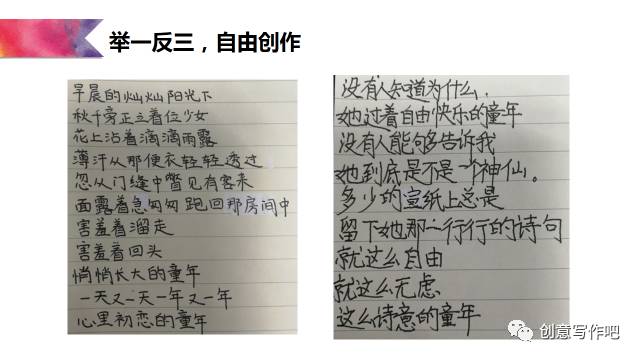 举一反三，自由创作
早晨的灿灿阳光下
秋千旁正立着位少女
花上沾着滴滴雨露
薄汗从那便衣轻轻透过
忽从门缝中瞥见有客来
面露着急匆匆跑回那房间中
害羞着溜走
害羞着回头
悄悄长大的童年
一天又一天一年又一年
心里初恋的童年
没有人知道为什么，
她过着自由快乐的童年
没有人能够告诉我
她到底是不是一个神仙。
多少的宣纸上总是
留下她那一行行的诗句
就这么自由
就这么无虑
这么诗意的童年
创意写作吧